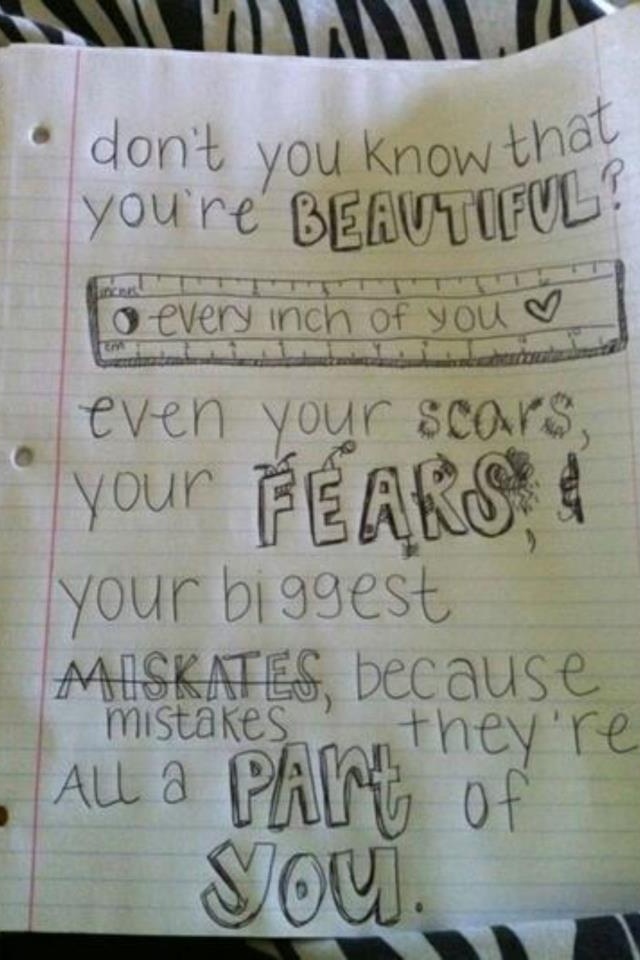 don't you know that
you're BEAUTIFUL?
inches
every inch of you
cm
even your scars,
your FEARS, &
your biggest
MISKATES, because
mistakes they're
ALL a PArt of
you.